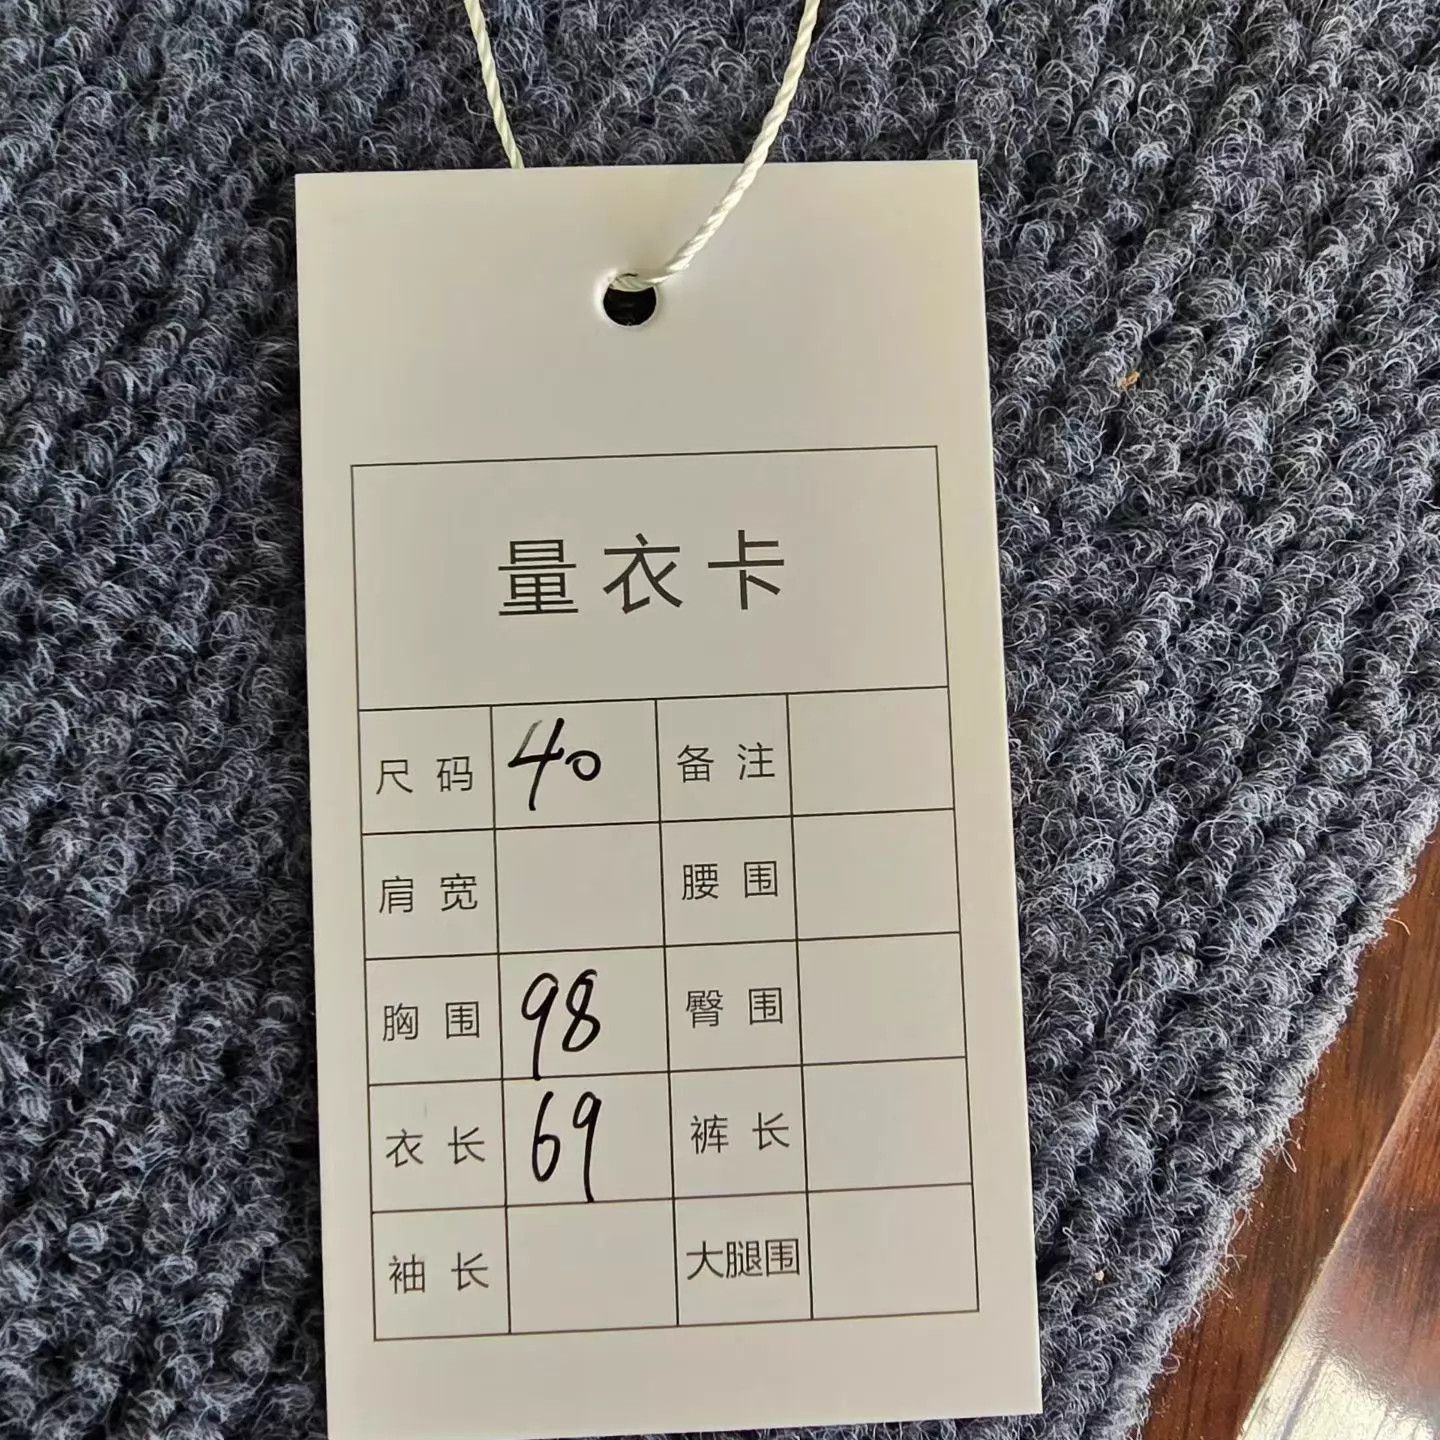 量衣卡
尺码 40 备注
肩宽 腰围
胸围 98 臀围
衣长 69 裤长
袖长 大腿围